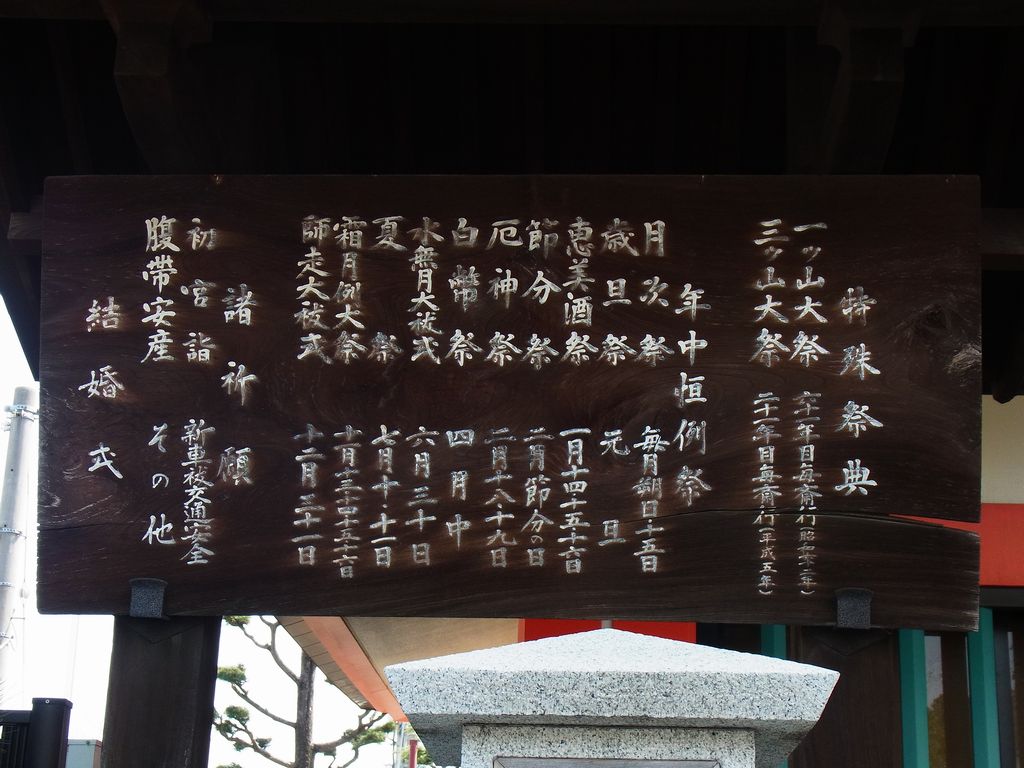 特殊祭典
一ッ山大祭 六十一年目毎斎行(昭和六十二年)
三ッ山大祭 二十一年目毎斎行(平成五年)
年中恒例祭
月次祭 毎月朔日十五日
歳旦祭 元旦
恵美酒祭 一月十四・十五・十六日
節分祭 二月節分の日
厄神祭 二月十八・十九日
白幣祭 四月中
水無月大祓式 六月三十日
夏祭 七月十・十一日
霜月例大祭 十一月十三・十四・十五・十六日
師走大祓式 十二月三十一日
諸祈願
初宮詣 新車祓交通安全
腹帯安産 その他
結婚式